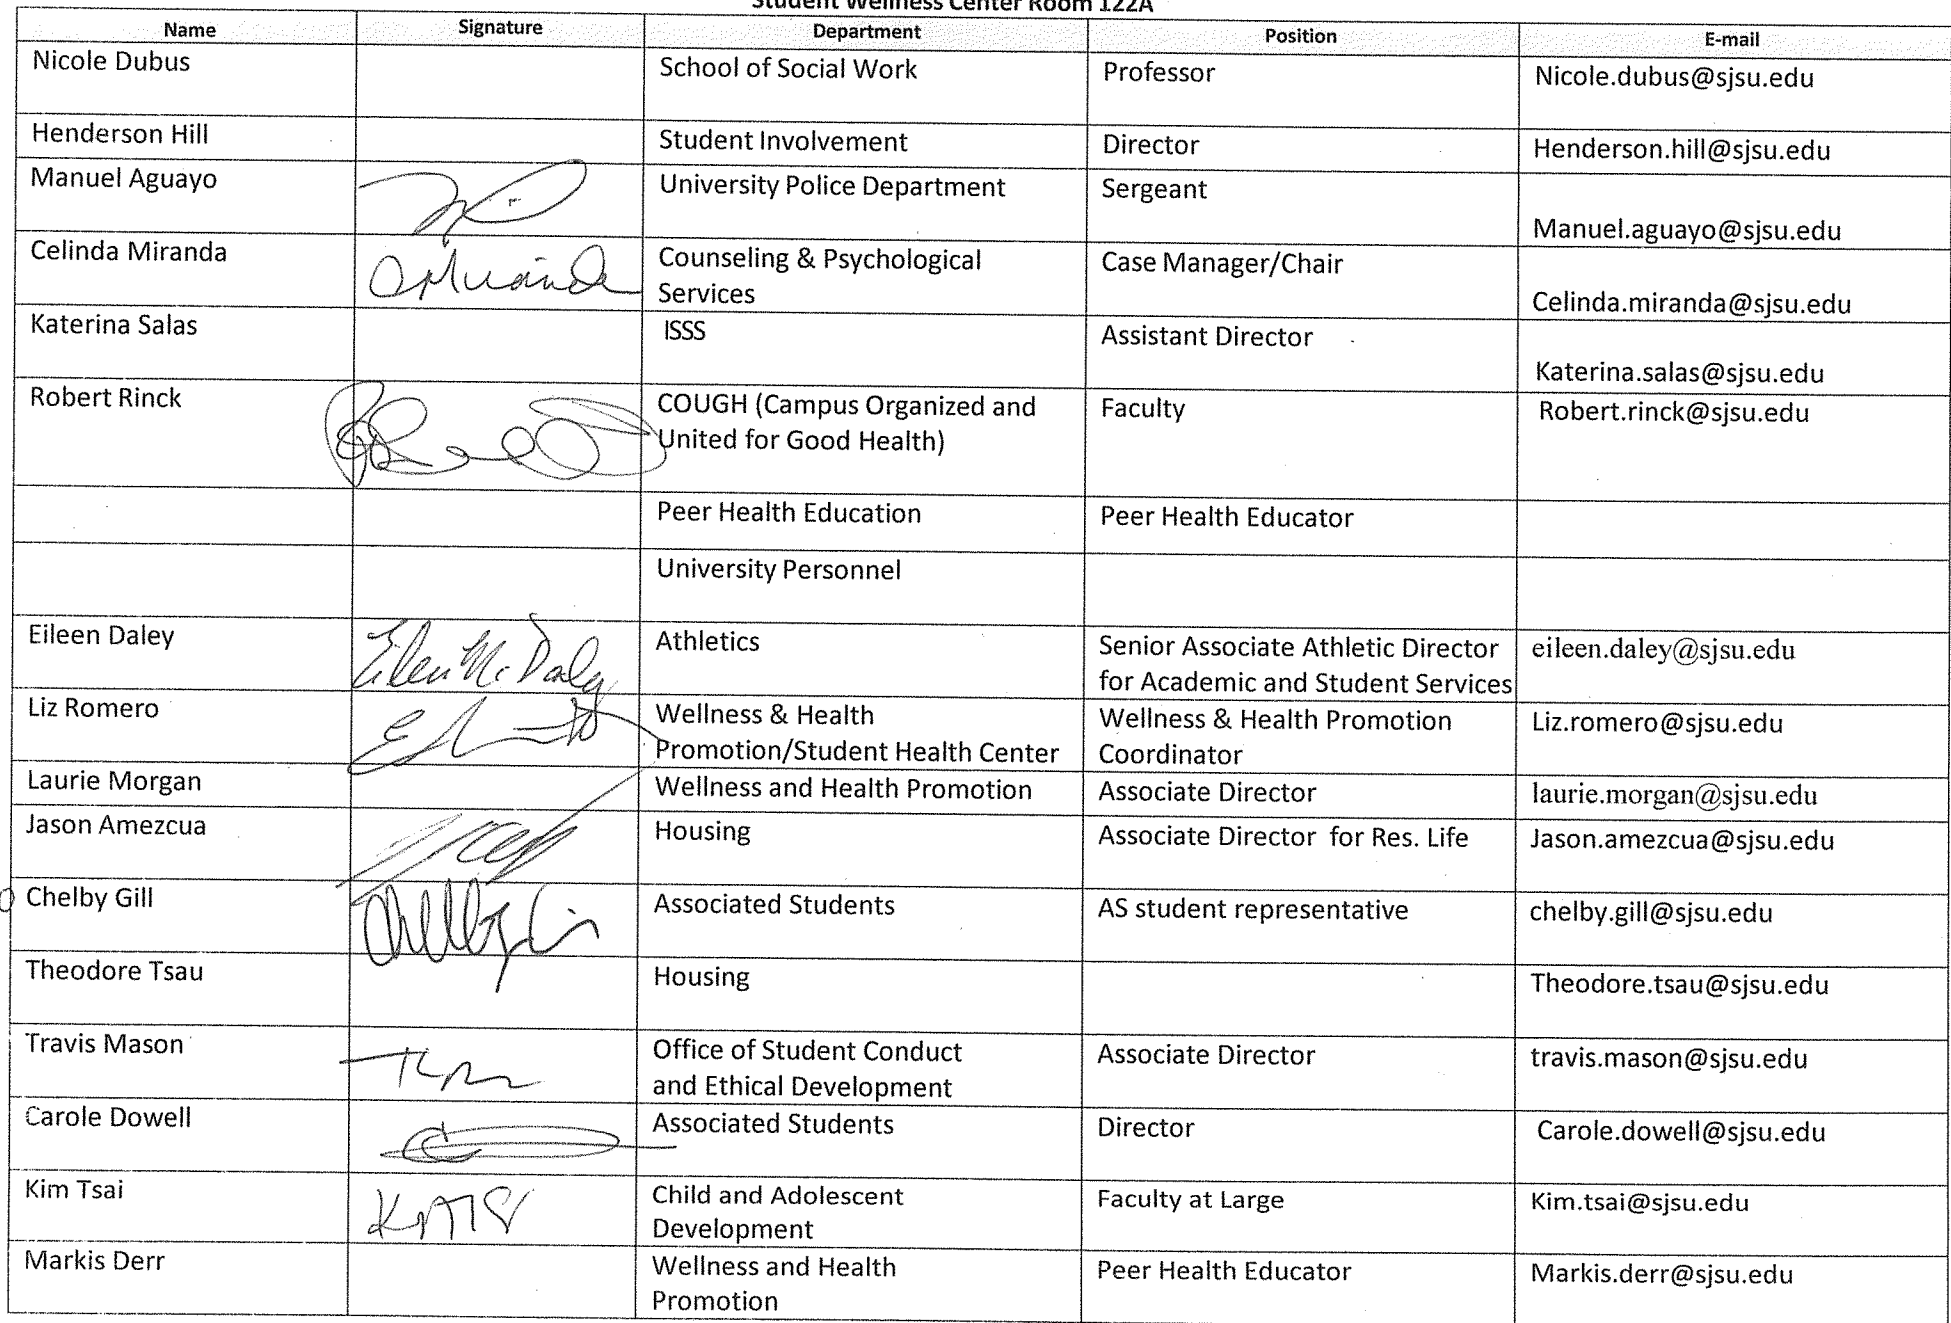 Student Wellness Center Room 122A
Name Signature Department Position E-mail
Nicole Dubus School of Social Work Professor Nicole.dubus@sjsu.edu
Henderson Hill Student Involvement Director Henderson.hill@sjsu.edu
Manuel Aguayo University Police Department Sergeant
Manuel.aguayo@sjsu.edu
Celinda Miranda Counseling & Psychological Case Manager/Chair
Services Celinda.miranda@sjsu.edu
Katerina Salas ISSS Assistant Director
Katerina.salas@sjsu.edu
Robert Rinck COUGH (Campus Organized and Faculty Robert.rinck@sjsu.edu
United for Good Health)
Peer Health Education Peer Health Educator
University Personnel
Eileen Daley Eileen M. Daley Athletics Senior Associate Athletic Director eileen.daley@sjsu.edu
for Academic and Student Services
Liz Romero Wellness & Health Wellness & Health Promotion Liz.romero@sjsu.edu
Promotion/Student Health Center Coordinator
Laurie Morgan Wellness and Health Promotion Associate Director laurie.morgan@sjsu.edu
Jason Amezcua Housing Associate Director for Res. Life Jason.amezcua@sjsu.edu
Chelby Gill Associated Students AS student representative chelby.gill@sjsu.edu
Theodore Tsau Housing Theodore.tsau@sjsu.edu
Travis Mason Office of Student Conduct Associate Director travis.mason@sjsu.edu
and Ethical Development
Carole Dowell Associated Students Director Carole.dowell@sjsu.edu
Kim Tsai Child and Adolescent Faculty at Large Kim.tsai@sjsu.edu
Development
Markis Derr Wellness and Health Peer Health Educator Markis.derr@sjsu.edu
Promotion